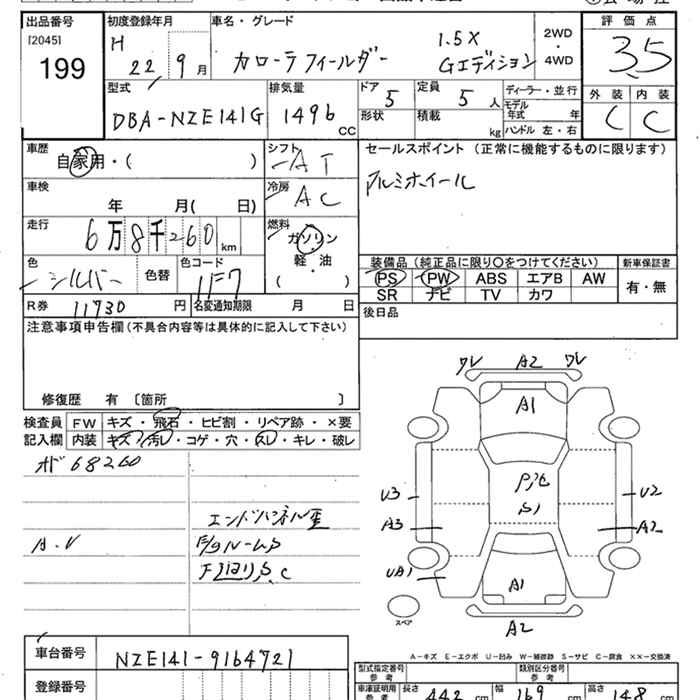 出品番号
[2045]
199
初度登録年月
H 22年 9月
車名・グレード
カローラフィールダー
1.5X
Gエディション
2WD
・
4WD
評価点
3.5
外装 内装
C C
型式
DBA-NZE141G
排気量
1496 CC
ドア 5
形状
定員 5 人
積載 kg
ディーラー・並行
モデル年式 年
ハンドル 左・右
車歴
自家用・( )
シフト
AT
車検
年 月( 日)
冷房
AC
走行
6万8千260 km
燃料
ガソリン
軽・油
( )
色
シルバー
色替
色コード
1F7
R券 11730 円
名変通知期限 月 日
セールスポイント(正常に機能するものに限ります)
アルミホイール
装備品(純正品に限り○をつけてください)
PS PW ABS エアB AW
SR ナビ TV カワ
新車保証書
有・無
後日品
注意事項申告欄(不具合内容等は具体的に記入して下さい)
修復歴 有 〔箇所 〕
検査員記入欄
FW キズ・飛石・ヒビ割・リペア跡・×要
内装 キズ・汚レ・コゲ・穴・スレ・キレ・破レ
68260
A.V
A2
A1
U3
A3
UA1
U2
A2
S1
A1
A2
スペア
A-キズ E-エクボ U-凹み W-補修跡 S-サビ C-腐食 ××-交換済
車台番号
NZE141-9164721
登録番号
型式指定番号
参考
類別区分番号
参考
車庫証明用
参考
長さ 442 cm
幅 169 cm
高さ 148 cm